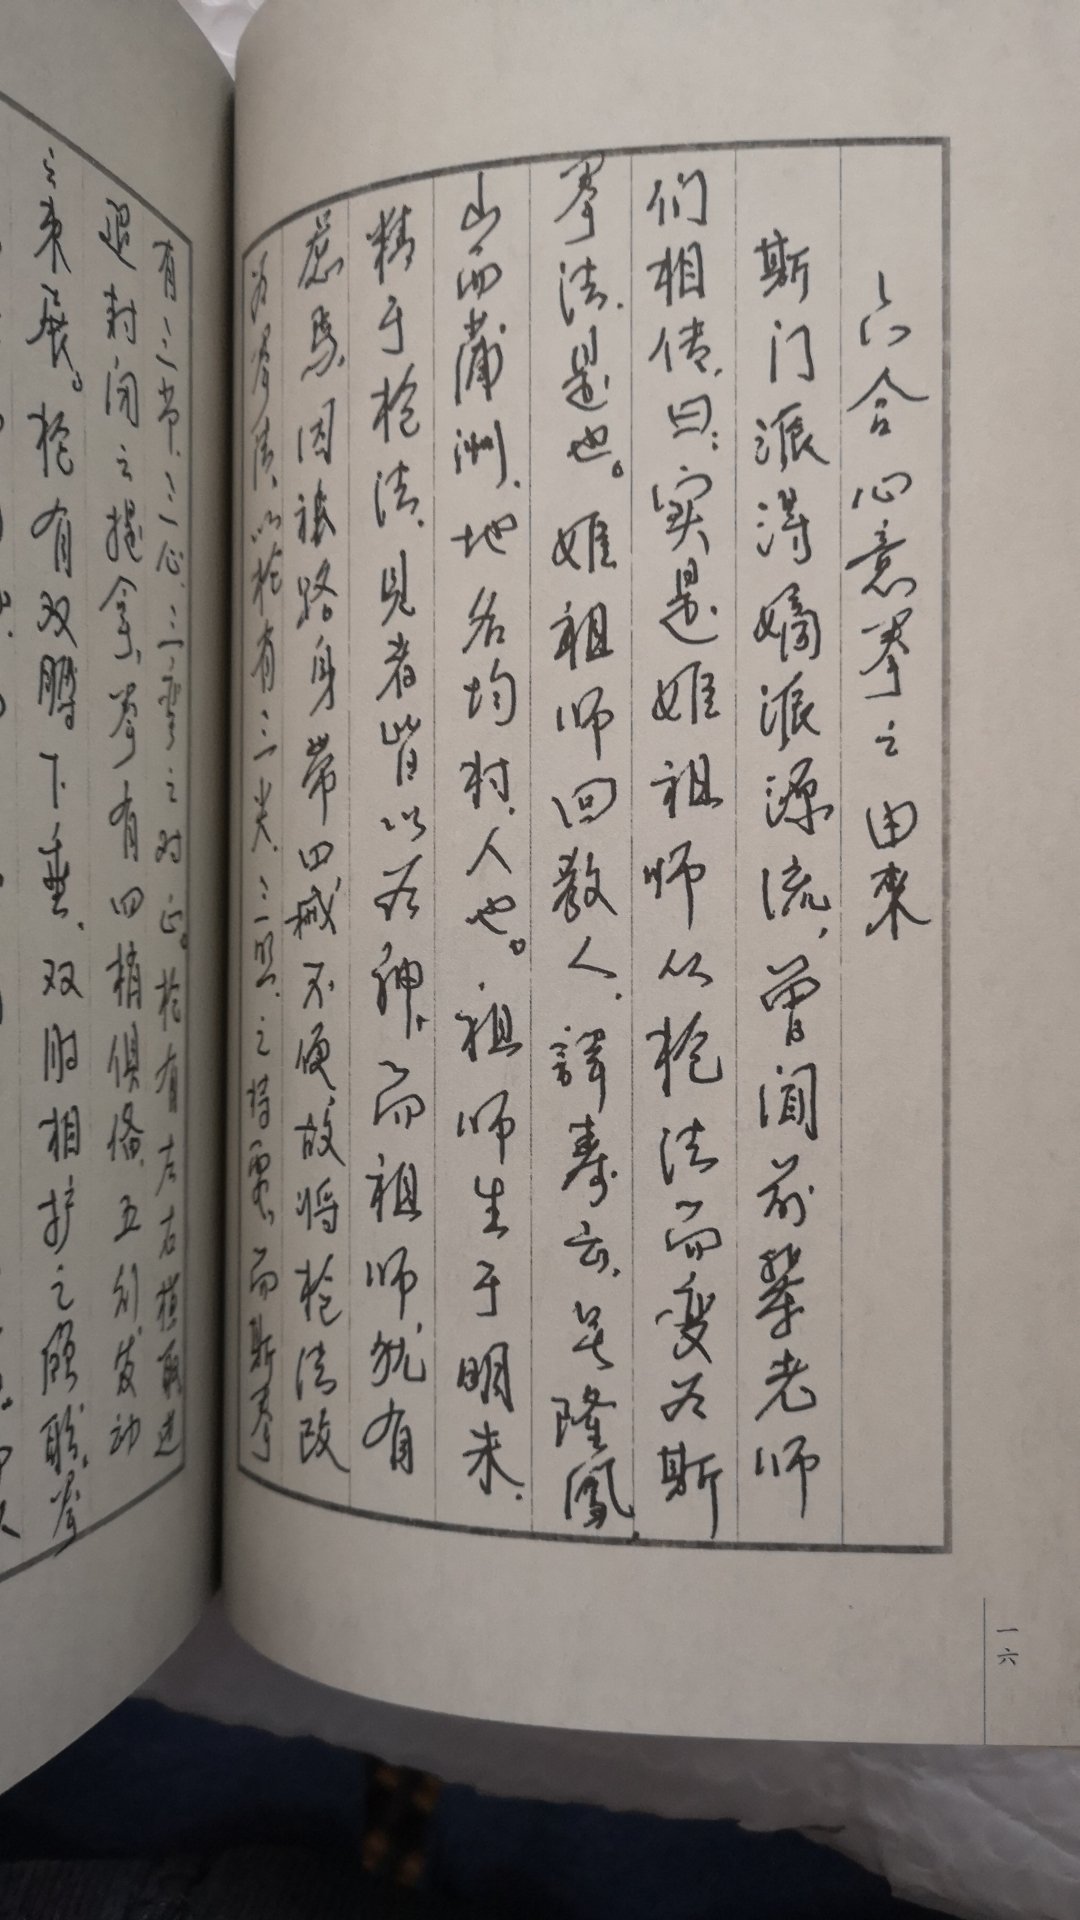 六合心意拳之由来
斯门派得嫡派源流，曾闻前辈老师
们相传，曰：实是姬祖师从枪法而变为斯
拳法是也。姬祖师回教人，讳寿云，号隆凤，
山西蒲洲，地名均村，人也。祖师生于明末，
精于枪法，见者皆以为神，而祖师犹有
虑焉，因被路身带四械不便，故将枪法改
为拳法，以枪有三尖，三照，之 而斯拳
有三节，三心，三弯之对正。枪有左右横 进
退封闭之提拿，拳有四梢俱备，五行发动
之束展。枪有双膀下垂，双肘相护之 ，拳
一六